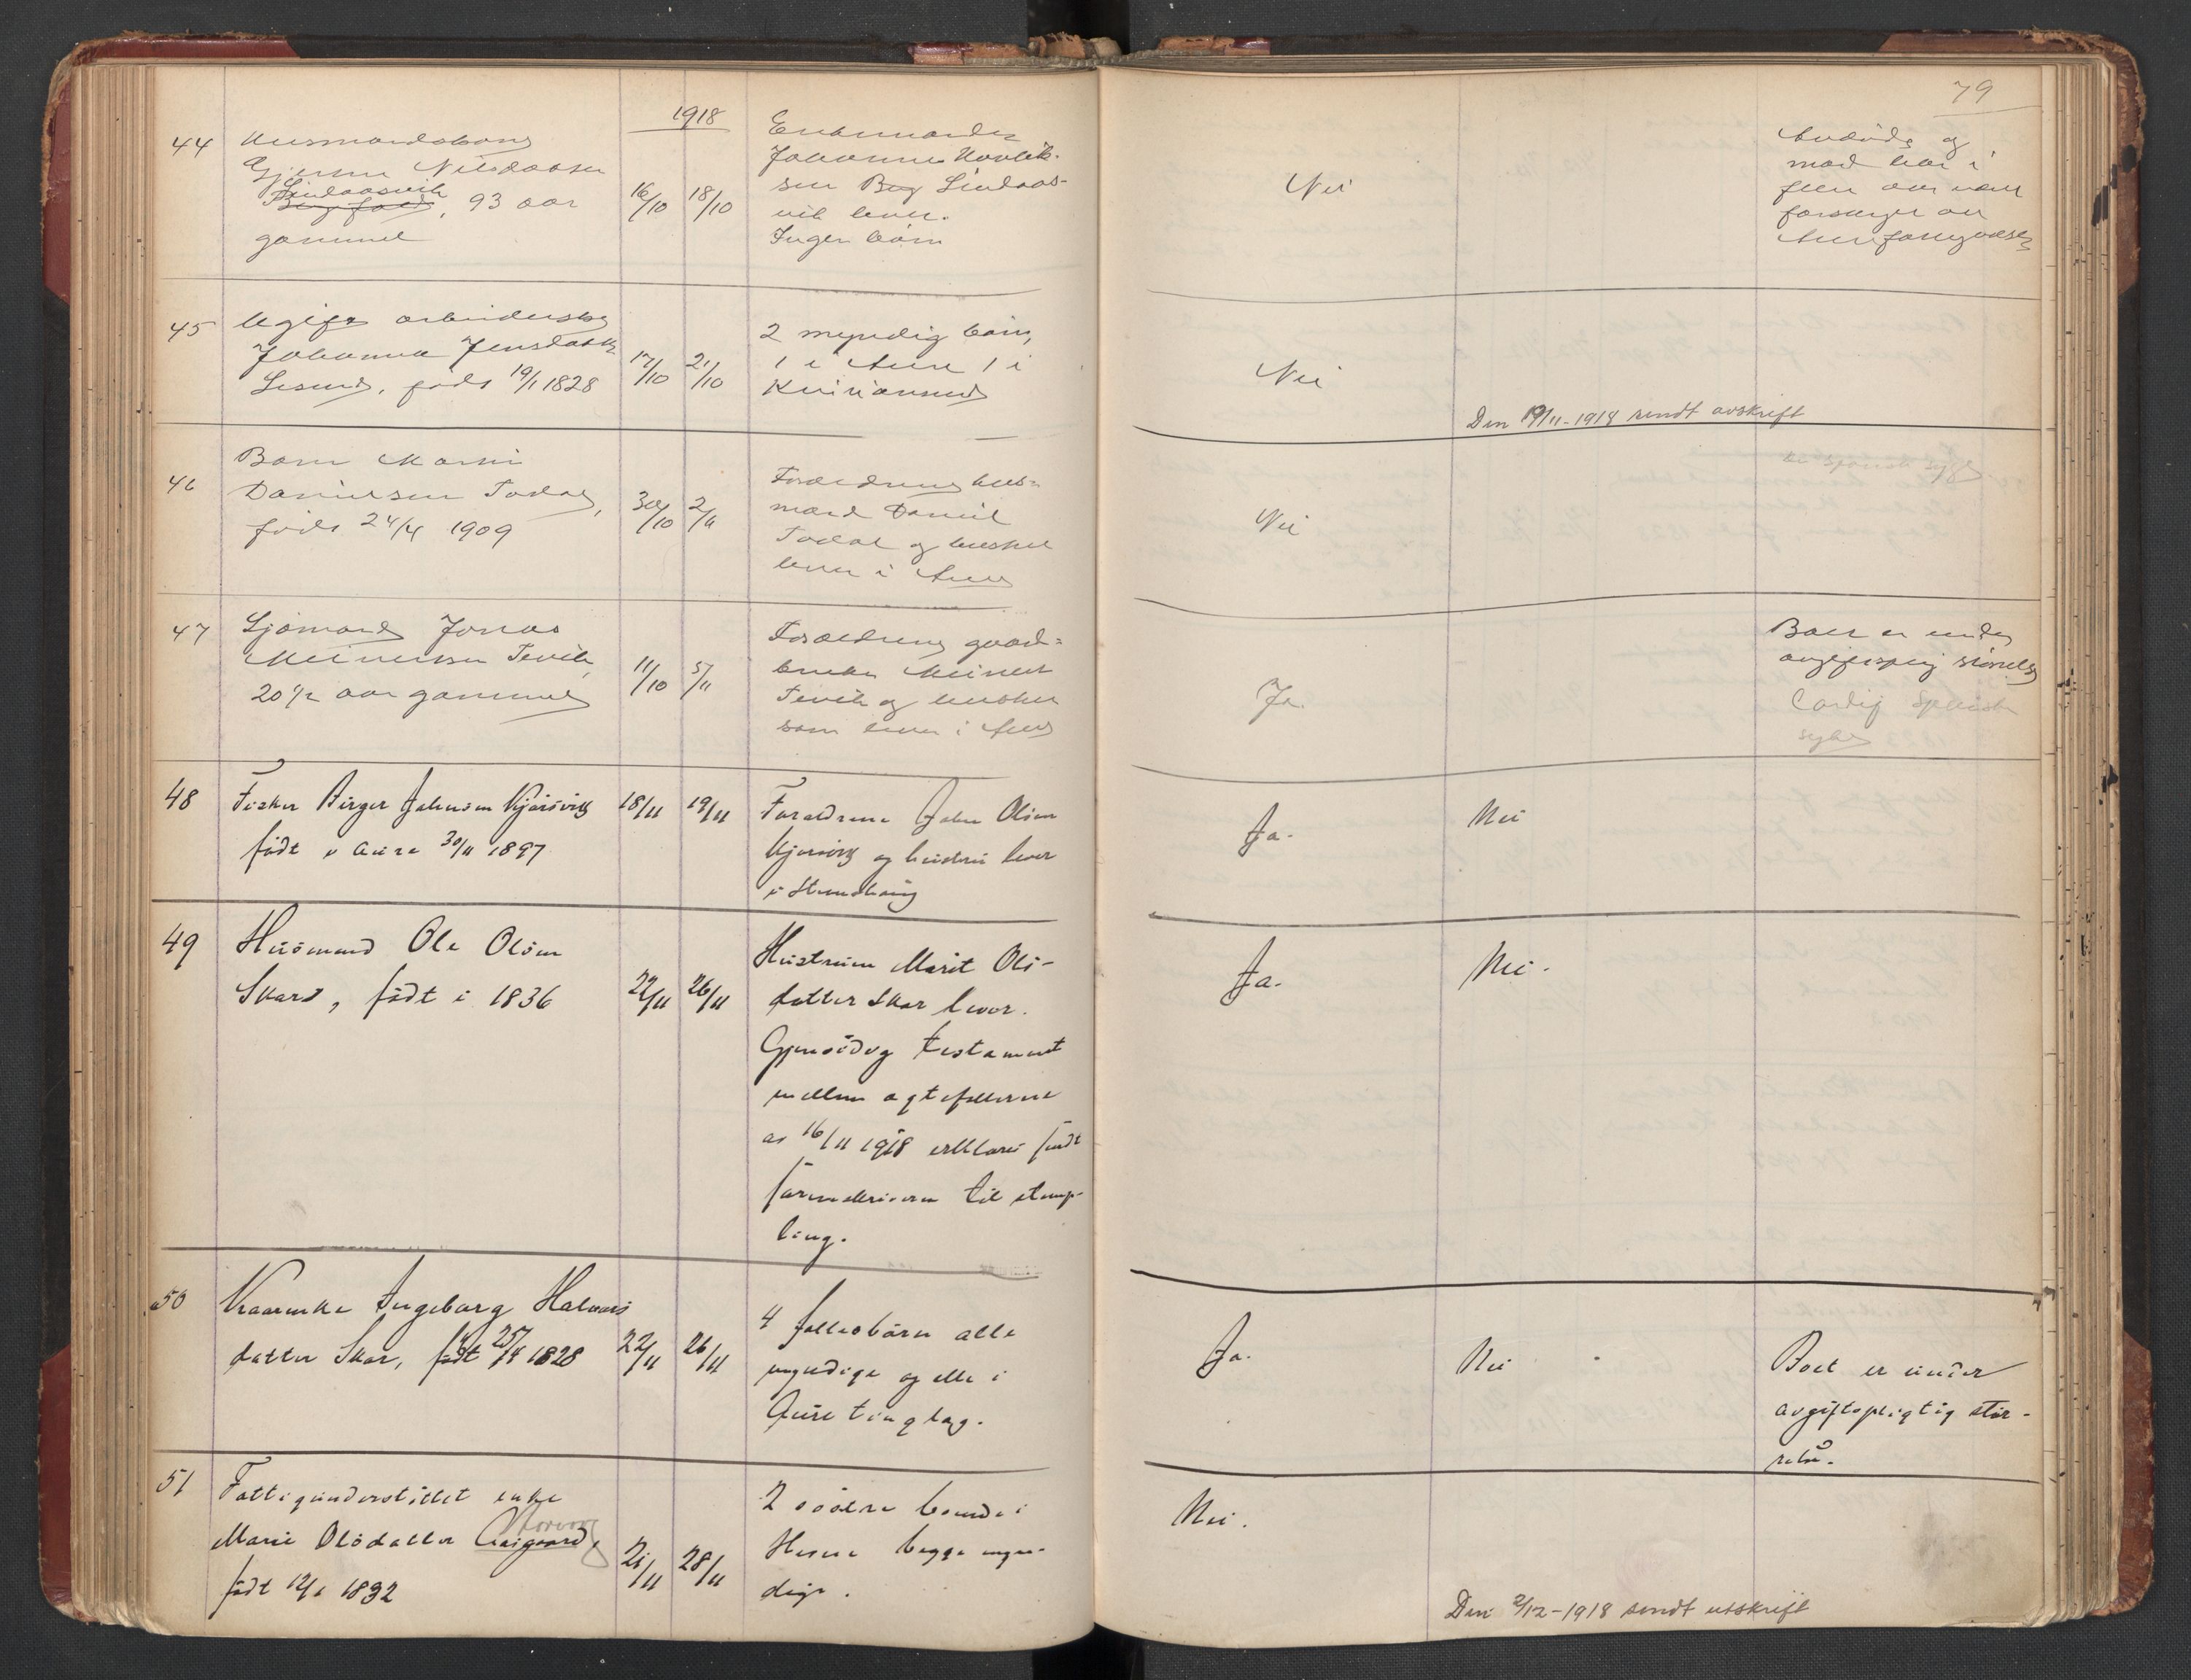 79
1918
44
Husmandskone
Gjertru Nilsdatter
Lindaasvik
93 aar
gammel
16/10 18/10
Enkemanden
Johannes
sen Berg Lindaas-
vik lever.
Ingen børn
Nei
Avdøde og
mand har i
flere aar vært
forsørget av
Aure forsorgsvæsen
45
Ugift arbeiderske
Johanna Jensdatter
Lesund, født 19/1 1828
17/10 21/10
2 myndig børn,
1 i Aure 1 i
Kristiansund
Nei
Den 19/11-1918 sendt avskrift
46
Barn
Danielsen Todal,
født 24/4 1909
30/10 2/11
Forældrene hus-
mand Daniel
Todal og hustru
lever i Aure
Nei
spansk syge
47
Sjømand Jonas
Meinertsen Tevik,
20 1/2 aar gammel
11/10 5/11
Forældrene gaard-
bruker Meinert
Tevik og hustru
som lever i Aure
Ja.
Boet er under
avgiftspligtig størrelse
Cardif Spansk
syke
48
Fisker Birger Johnsen Kjørsvik
født i Aure 30/11 1897
18/11 19/11
Forældrene John Olsen
Kjørsvik og hustru lever
i Stemshaug
Ja.
Nei
49
Husmand Ole Olsen
Skar, født i 1836
22/11 26/11
Hustruen Marit Ols-
datter Skar lever.
Gjensidig testament
mellem ægtefellerne
av 16/11 1918 erklæres sendt
sorenskriveren til stemp-
ling.
Ja.
Nei.
50
Kaarenke Ingeborg Halvors
datter Skar, født 25/4 1828
22/11 26/11
4 fellesbørn alle
myndige og alle i
Aure tinglag.
Ja.
Nei
Boet er under
avgiftspligtig stør-
relse.
51
Fattigunderstøttet enke
Marie Olsdatter Aasgaard,
født 12/1 1832
21/11 28/11
2 sønner boende i
Hevne begge myn-
dige.
Nei.
Den 2/12-1918 sendt utskrift